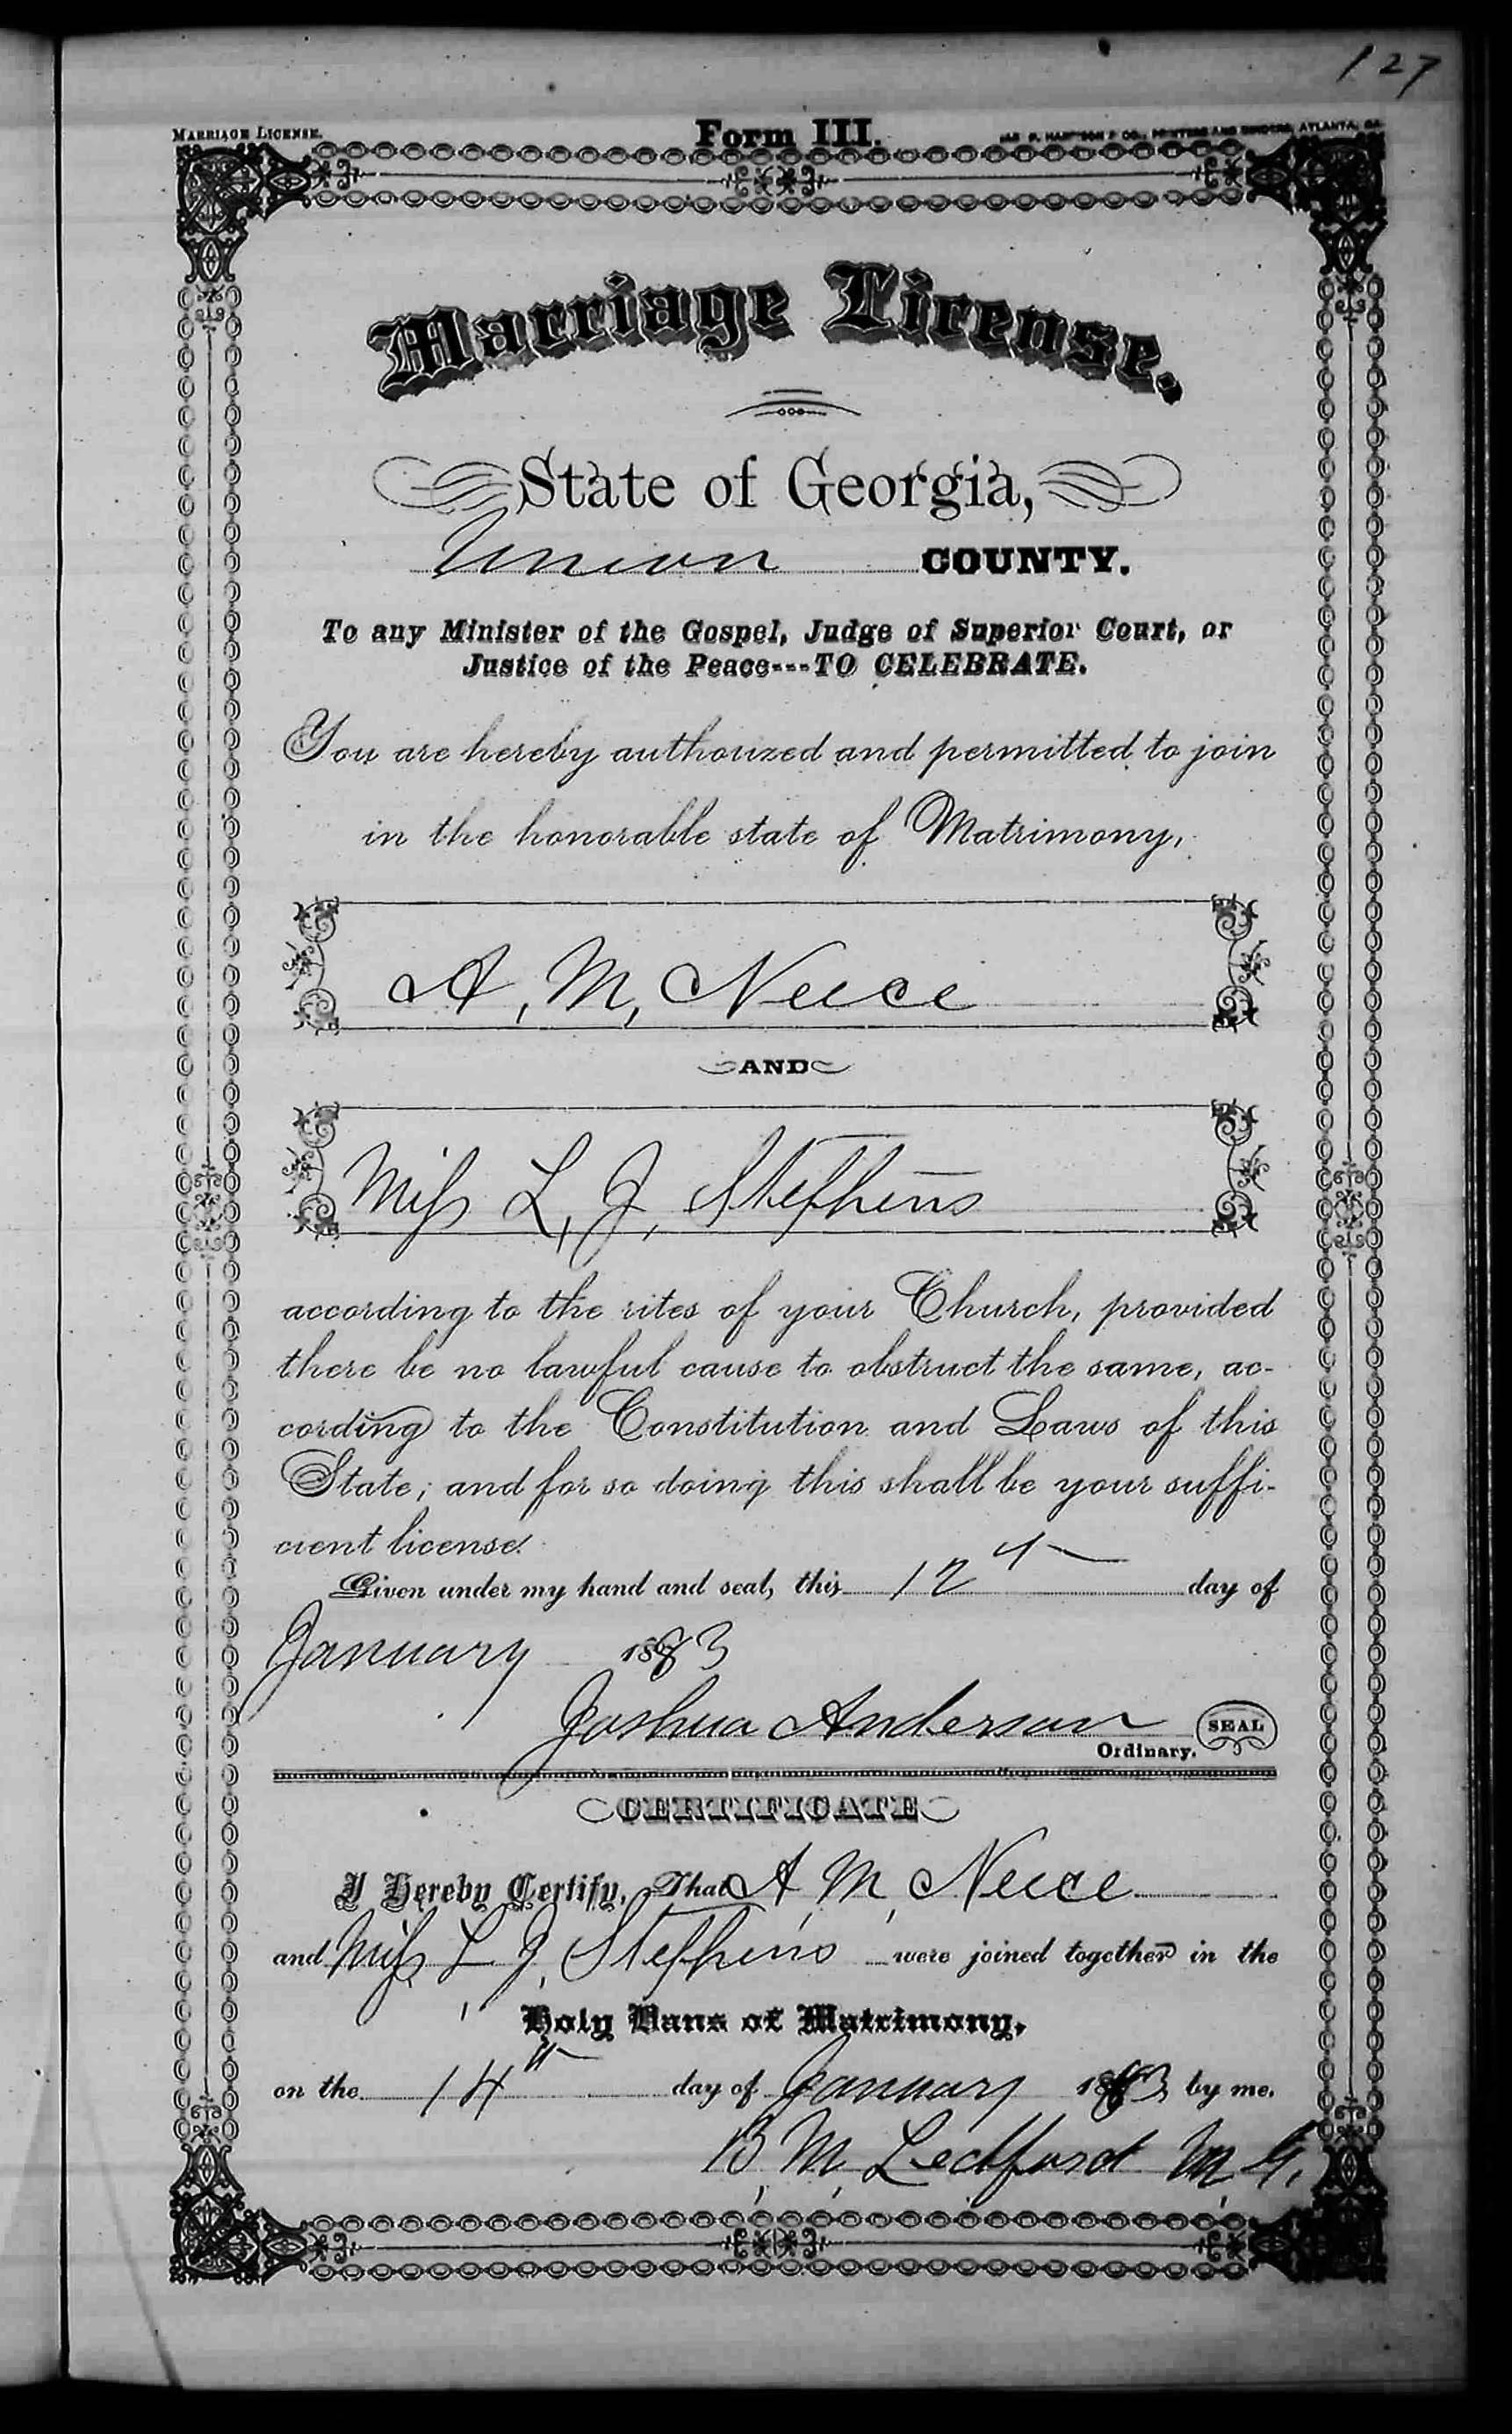 127
MARRIAGE LICENSE.
Form III.
JAS P. HARRISON & CO., PRINTERS AND BINDERS, ATLANTA, GA.
Marriage License.
State of Georgia,
Union COUNTY.
To any Minister of the Gospel, Judge of Superior Court, or
Justice of the Peace---TO CELEBRATE.
You are hereby authorized and permitted to join
in the honorable state of Matrimony,
A. M. Neice
AND
Miss L. J. Stephens
according to the rites of your Church, provided
there be no lawful cause to obstruct the same, ac-
cording to the Constitution and Laws of this
State; and for so doing this shall be your suffi-
cient license.
Given under my hand and seal, this 12th day of
January 1883
Joshua Anderson SEAL
Ordinary.
CERTIFICATE
I Hereby Certify, That A. M. Neice
and Miss L. J. Stephens were joined together in the
Holy Bans of Matrimony,
on the 14th day of January 1883 by me.
B. M. Ledford M. G.